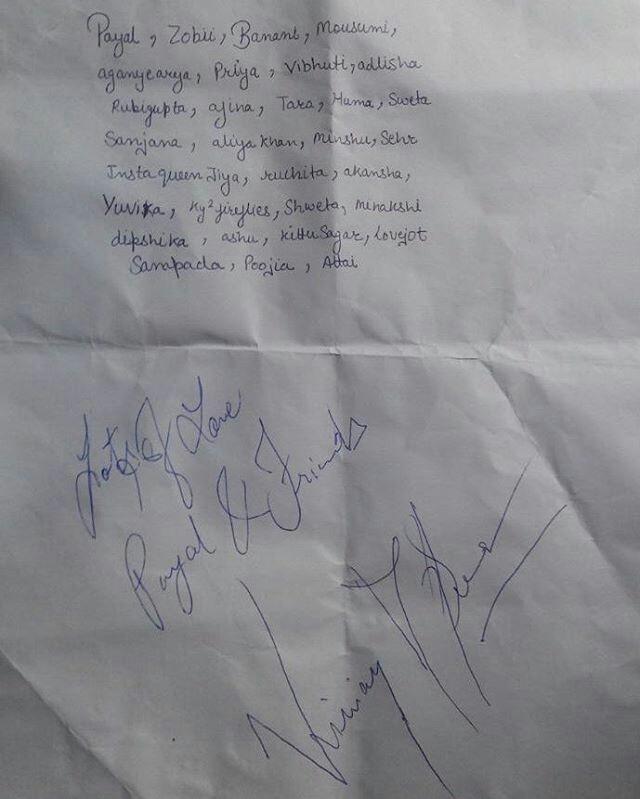 Payal, Zobii, Banani, Mousumi,
aganyearya, Priya, Vibhuti, adlisha
Rubigupta, ajina, Tara, Huma, Sweta
Sanjana, aliya khan, Minshu, Sehr
Insta queen Jiya, ruchita, akansha,
Yuvika, Ky²fireflies, Shweta, Minakshi
dipshika, ashu, Kittu Sagar, Lovejot
Sarapada, Poojia,
Lots of Love
Payal & Friends
Vinay